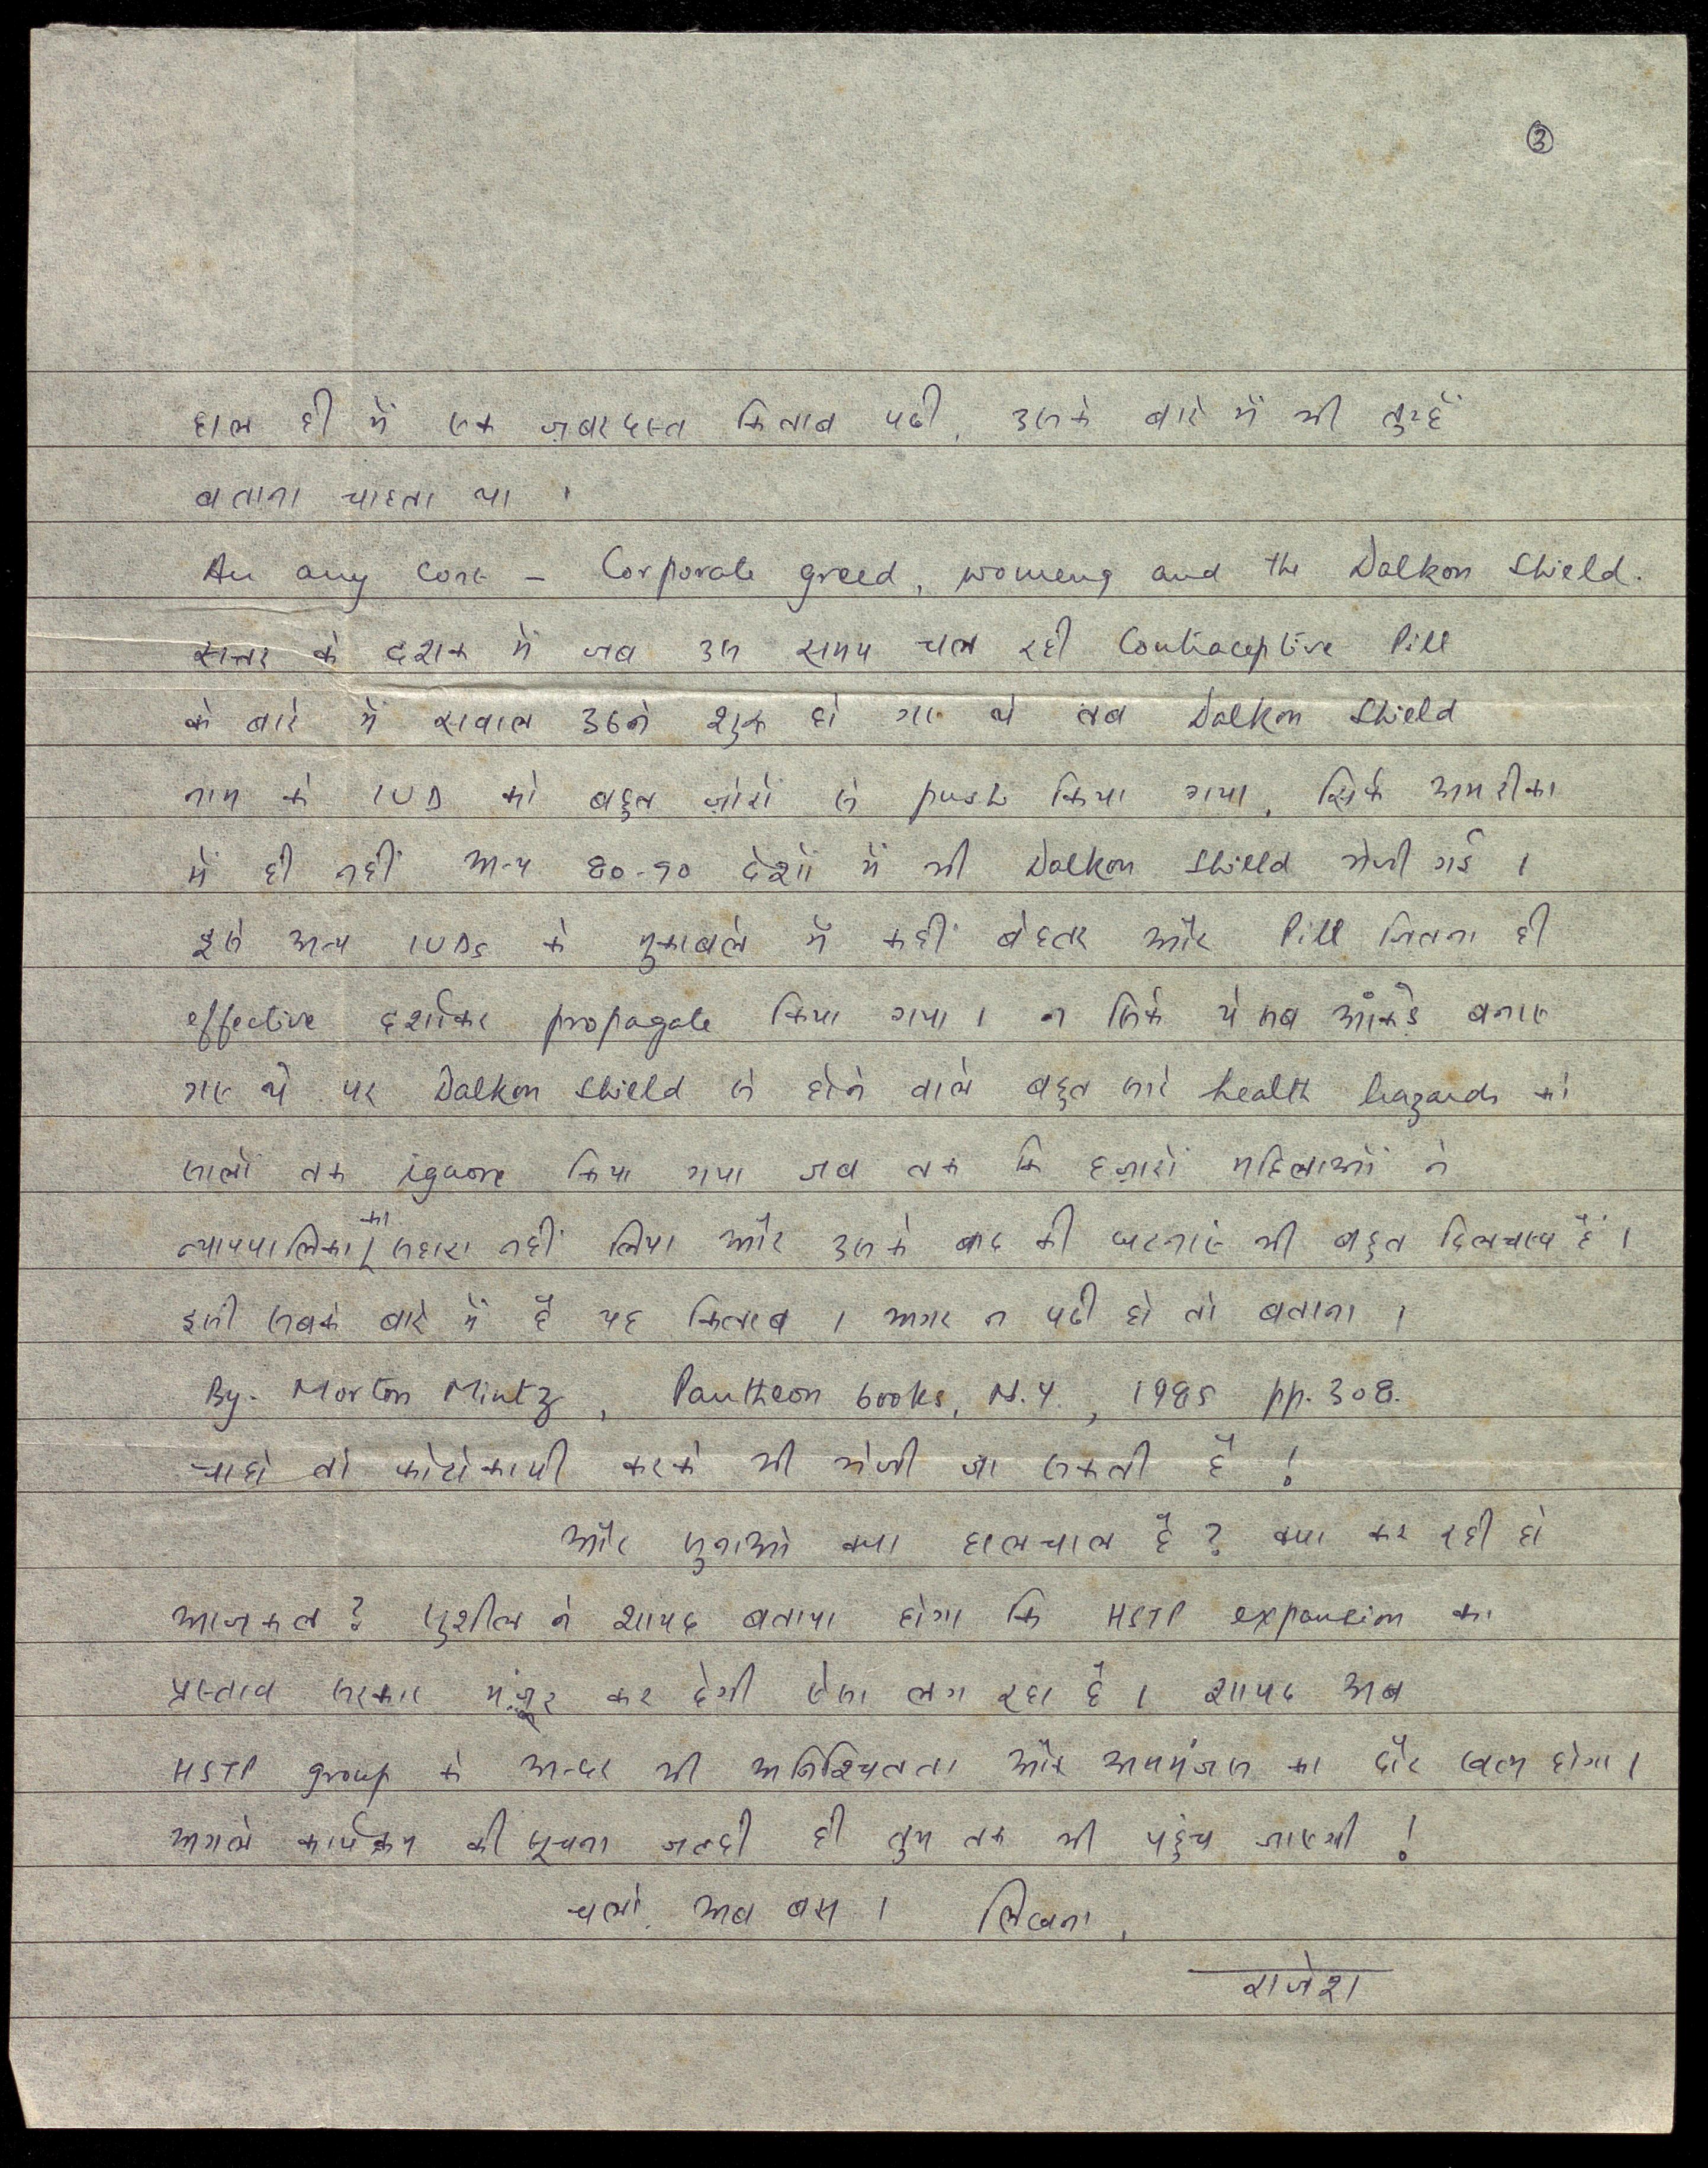 ③
हाल ही में एक ज़बरदस्त किताब पढ़ी, उसके बारे में भी तुम्हें
बताना चाहता था ।
At any cost – Corporate greed, womeng and the Dalkon Shield.
सत्तर के दशक में जब उस समय चल रही Contraceptive Pill
के बारे में सवाल उठने शुरू हो गए थे तब Dalkon Shield
नाम के IUD को बहुत ज़ोरों से push किया गया, सिर्फ अमरीका
में ही नहीं अन्य 80-90 देशों में भी Dalkon Shield भेजी गई ।
इसे अन्य IUDs के मुकाबले में कहीं बेहतर और Pill जितना ही
effective दर्शाकर propagate किया गया । न सिर्फ ये सब आंकड़े बनाए
गए थे पर Dalkon Shield से होने वाले बहुत सारे health hazards को
सालों तक ignore किया गया जब तक कि हज़ारों महिलाओं ने
न्यायपालिका का सहारा नहीं लिया और उसके बाद की घटनाएं भी बहुत दिलचस्प हैं ।
इसी सबके बारे में है यह किताब । अगर न पढ़ी हो तो बताना ।
By- Morton Mintz, Pantheon books, N.Y., 1985 pp. 308.
चाहो तो फोटोकापी करके भी भेजी जा सकती है !
और सुनाओ क्या हालचाल है ? क्या कर रही हो
आजकल ? सुशील ने शायद बताया होगा कि HSTP expansion का
प्रस्ताव सरकार मंज़ूर कर देगी ऐसा लग रहा है । शायद अब
HSTP group के अन्दर भी अनिश्चितता और असमंजस का दौर खत्म होगा ।
अगले कार्यक्रम की सूचना जल्दी ही तुम तक भी पहुंच जाएगी !
चलो, अब बस । लिखना,
राजेश